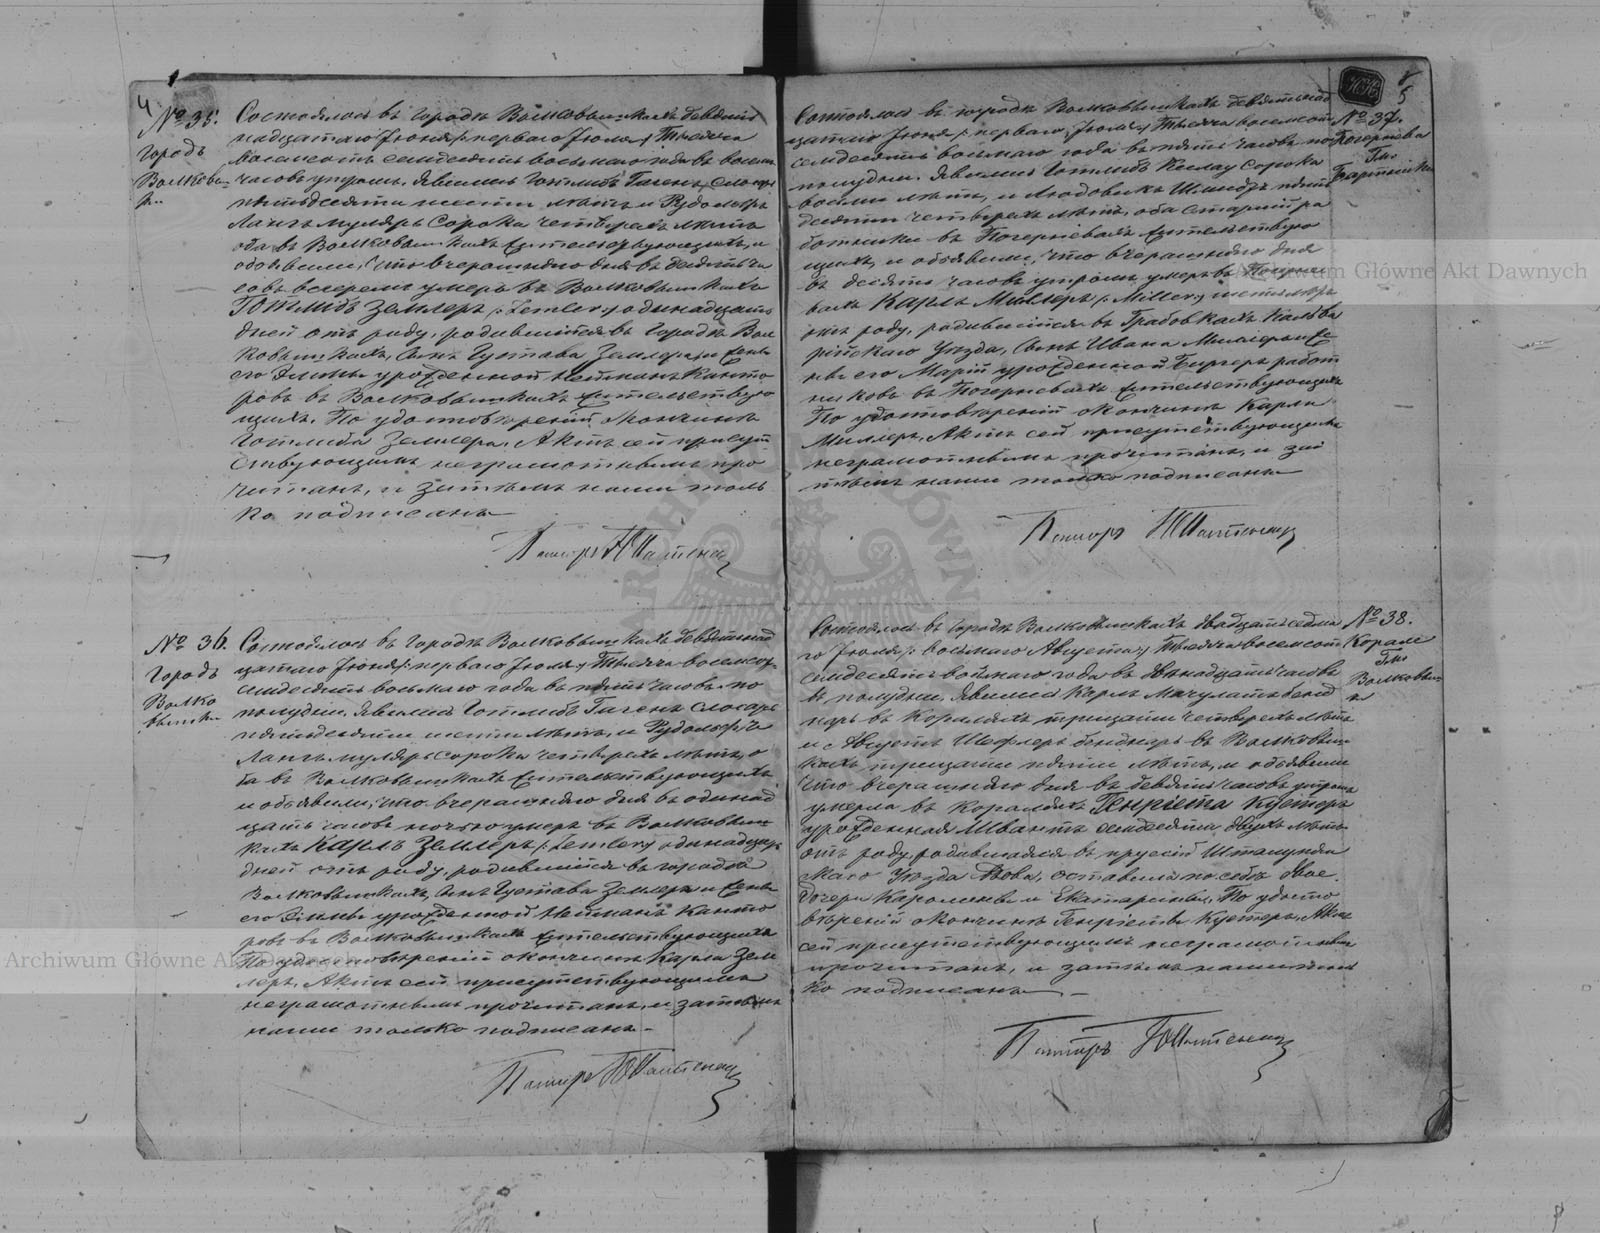 4
№ 35.
Городъ
Волковы-
Состоялось въ городѣ Волковышкахъ девят
надцатаго Іюня /: перваго Іюля :/ Тысяча
восемьсотъ семдесятъ восьмаго года въ восемь
часовъ утромъ. Явились Готлибъ Гагенъ, слосарь
пятьдесяти шести лѣтъ и Рудольфъ
Лангъ муляръ сорока четырехъ лѣтъ
оба въ Волковышкахъ жительствующіе, и
объявили, что вчерашняго дня въ девять ча
совъ вечеромъ умеръ въ Волковышкахъ
Готлибъ Землеръ /: Zemler :/ одинадцать
дней отъ роду, родившійся въ городѣ Вол
ковышкахъ, сынъ Густава Землера и жены
его урожденной Нейманъ Канто
ровъ въ Волковышкахъ жительствую
щихъ. По удостовѣреніи о кончинѣ
Готлиба Землера, Актъ сей присут
ствующимъ неграмотнымъ про
читанъ, и затѣмъ нами толь
ко подписанъ
Пасторъ
№ 36.
Городъ
Волко
вышки
Состоялось въ городѣ Волковышкахъ девятнад
цатаго Іюня /: перваго Іюля :/ Тысяча восемсотъ
семдесятъ восьмаго года въ пять часовъ по
полудни. Явились Готлибъ Гагенъ слосарь
пятьдесяти шести лѣтъ, и Рудольфъ
Лангъ муляръ сорока четырехъ лѣтъ, о
ба въ Волковышкахъ жительствующіе
и объявили, что вчерашняго дня въ одинад
цать часовъ ночью умеръ въ Волковыш
кахъ Карлъ Землеръ /: Zemler :/ одинадцать
дней отъ роду, родившійся въ городѣ
Волковышкахъ, сынъ Густава Землера и жены
его урожденной Нейманъ Канто
ровъ въ Волковышкахъ жительствующихъ
По удостовѣреніи о кончинѣ Карла Зем
леръ, Актъ сей присутствующимъ
неграмотнымъ прочитанъ, и затѣмъ
нами только подписанъ
Пасторъ
5
№ 37.
Гми
Состоялось въ городѣ Волковышкахъ девятьнад
цатаго Іюня /: перваго Іюля :/ Тысяча восемсотъ
семдесятъ восьмаго года въ пять часовъ по
полудни. Явились Готлибъ Кеслау сорока
восми лѣтъ, и Людовикъ Шмидтъ пять
десяти четырехъ лѣтъ, оба старши ра
ботники въ жительствую
щіе, и объявили, что вчерашняго дня
въ десять часовъ утромъ умеръ въ
Карлъ Миллеръ /: Miller :/
отъ роду, родившійся въ Грабовкахъ Кальва
рійскаго Уѣзда, сынъ Ивана Миллера и Же
ны его Маріи урожденной Бергеръ работ
никовъ въ жительствующихъ
По удостовѣреніи о кончинѣ Карла
Миллеръ, Актъ сей присутствующимъ
неграмотнымъ прочитанъ, и за
тѣмъ нами только подписанъ
Пасторъ
№ 38.
Гми
Состоялось въ городѣ Волковышкахъ двадцать седма
го Іюля /: восьмаго Августа :/ Тысяча восемсотъ
семдесятъ восьмаго года въ двенадцать часовъ
въ полудни. Явились Карлъ Мачулатъ бенд
наръ въ Кораляхъ тридцати четырехъ лѣтъ
и Августъ Шефлеръ бендаръ въ Волковыш
кахъ тридцати пяти лѣтъ, и объявили
что вчерашняго дня въ девять часовъ утромъ
умерла въ Кораляхъ Генріета Кустеръ
урожденная Швантъ семдесяти двухъ лѣтъ
отъ роду, родившаяся въ прусіи
оставила по себѣ двое
дочери Каролину и Екатарину. По удосто
вѣреніи о кончинѣ Генріеты Кустеръ, Актъ
сей присутствующимъ неграмотнымъ
прочитанъ, и затѣмъ нами толь
ко подписанъ
Пасторъ
Archiwum Główne Akt Dawnych
Archiwum Główne Akt Dawnych